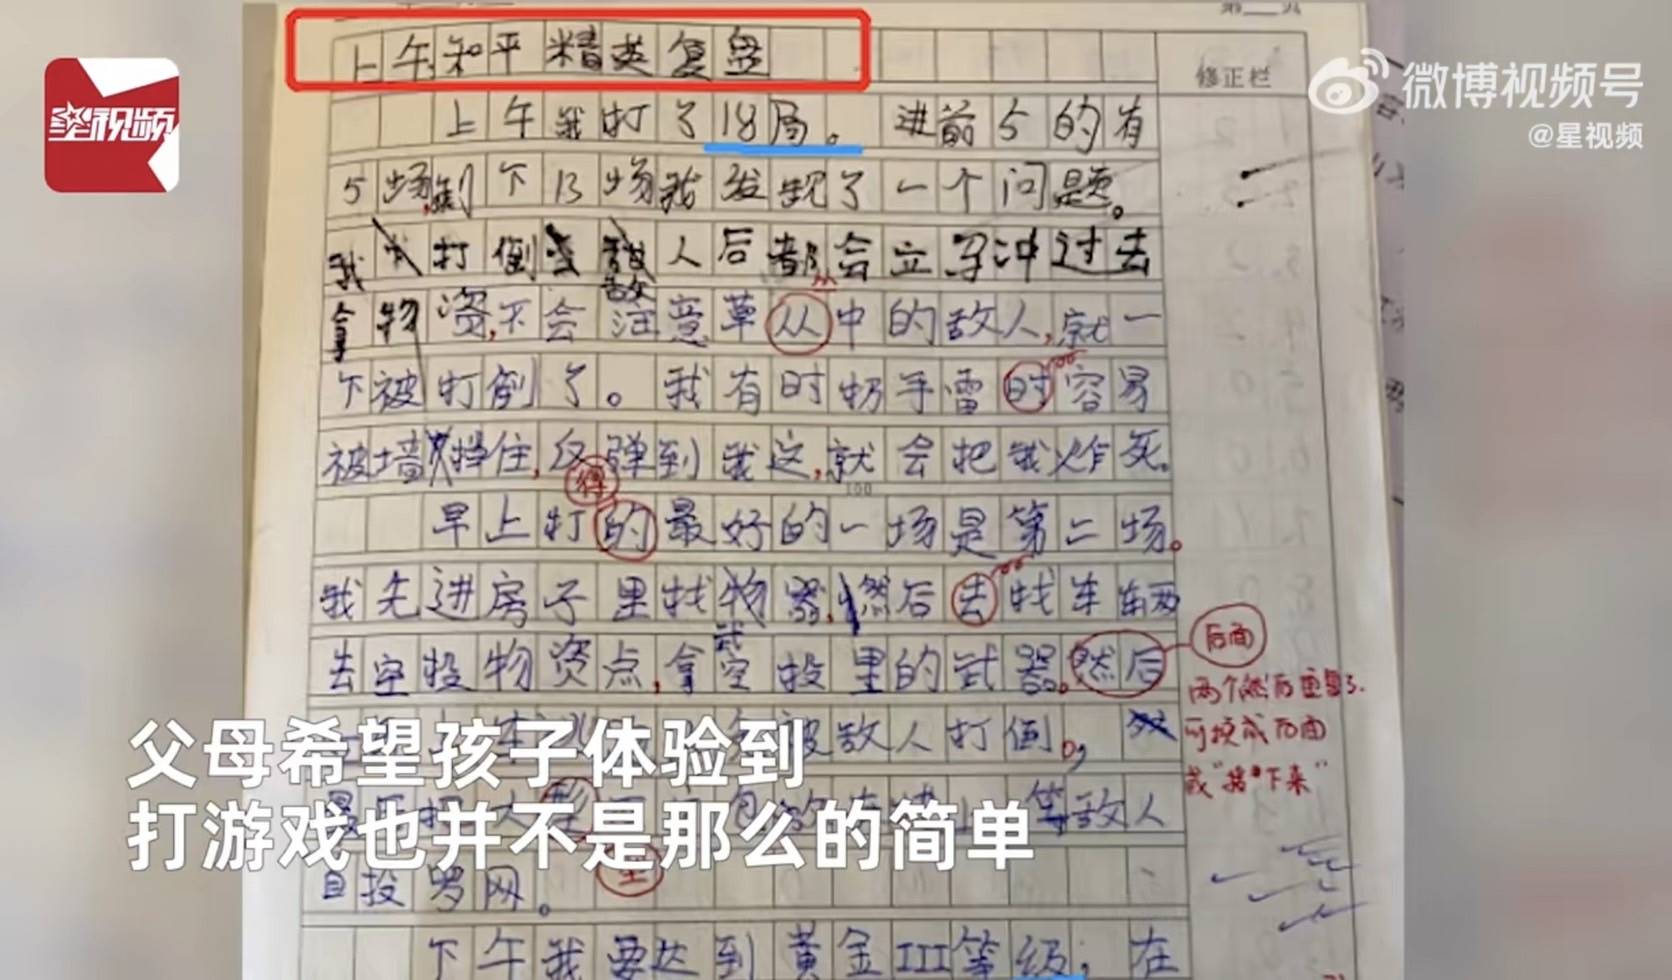 第___页
上午和平精英复盘
修正栏
微博视频号
@星视频
星视频
上午我打了18局。进前5的有
5场,剩下13场我发现了一个问题。
我打倒敌人后都会立马冲过去
拿物资,不会注意草从中的敌人,就一
下被打倒了。我有时扔手雷时容易
被墙挡住,反弹到我这,就会把我炸死。
得
100
早上打的最好的一场是第二场。
我先进房子里找物器,然后去找车辆
武
去空投物资点,拿空投里的武器。然后
后面
两个然后重复了.
可换成后面
或"接下来"
被敌人打倒。,
父母希望孩子体验到
等敌人
打游戏也并不是那么的简单
自投罗网。
型
下午我要达到黄金III等级,在